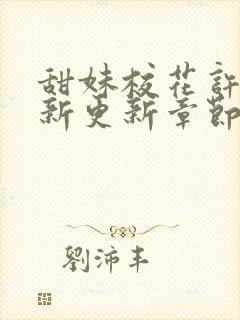 甜妹校花許
新更新章節
劉沛丰